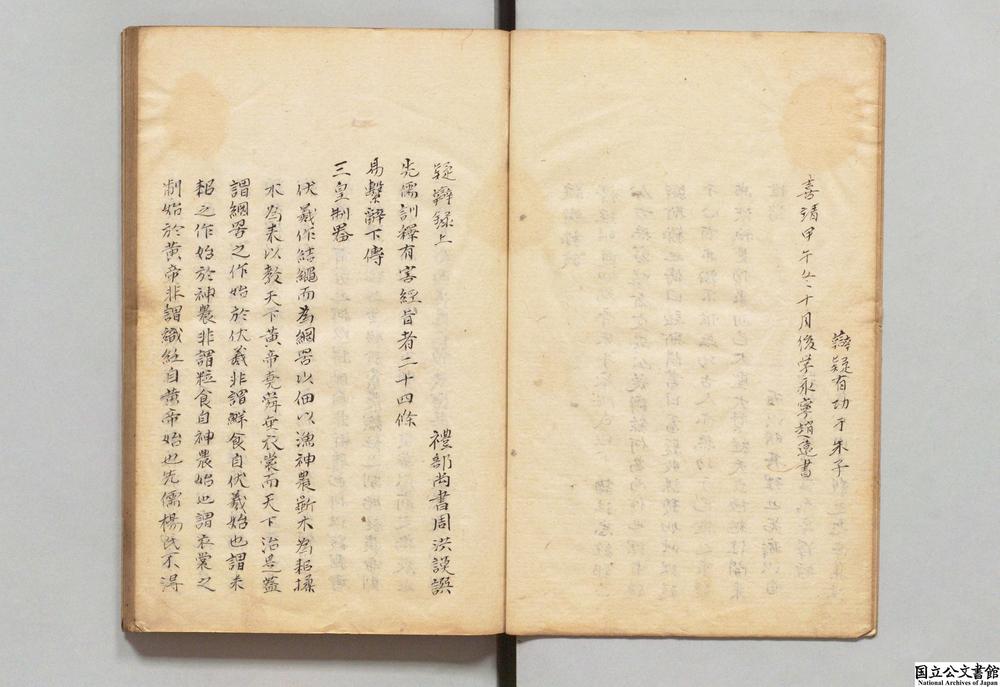 辯疑有功于朱子
嘉靖甲午冬十月後學永寧趙遠書
疑辯録上
禮部尚書周洪謨譔
先儒訓釋有害經旨者二十四條
易繫辭下傳
三皇制器
伏羲作結繩而為網罟以佃以漁神農斵木為耜揉
木為耒以教天下黃帝堯舜垂衣裳而天下治是蓋
謂網罟之作始於伏羲非謂鮮食自伏羲始也謂耒
耜之作始於神農非謂粒食自神農始也謂衣裳之
制始於黃帝非謂織紝自黃帝始也先儒楊氏不得
国立公文書館
National Archives of Japan